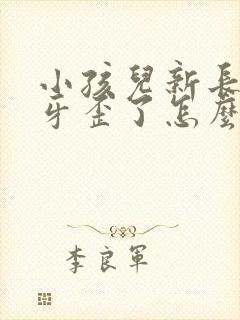 小孩兒新長
牙歪了怎麼
李良軍